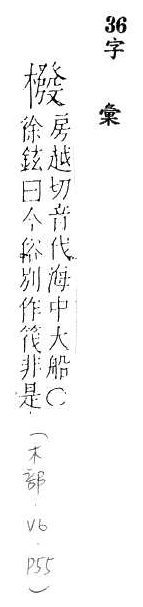 36
字彙
橃房越切音伐海中大船〇
徐鉉曰今俗別作筏非是
(木部.V6.P55)